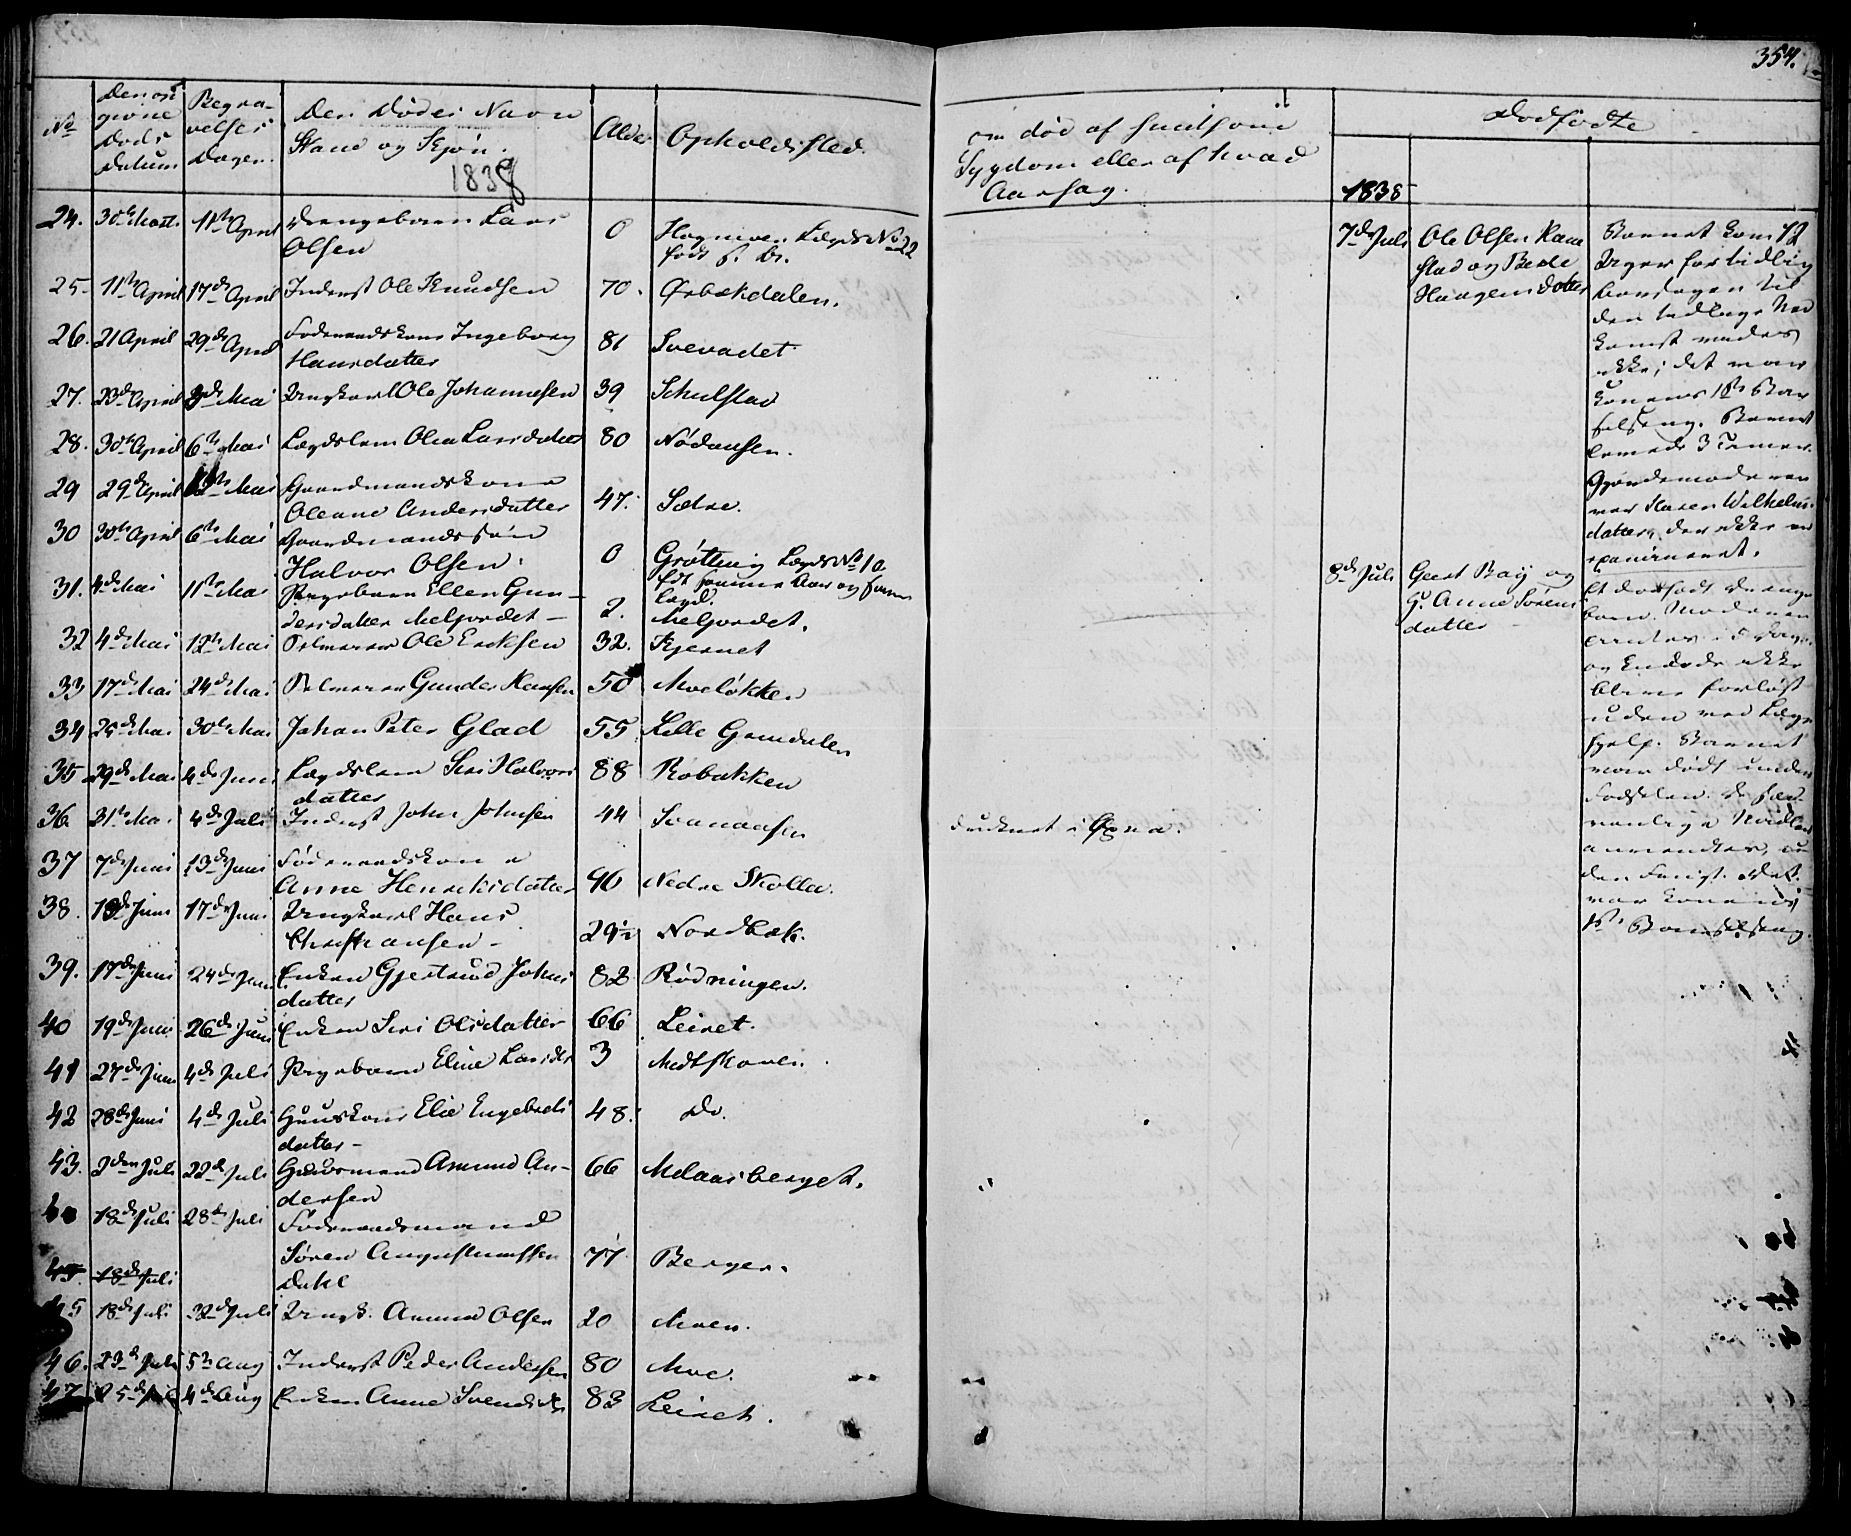 354.
No
Den op
givne
Döds
Datum
Begra-
velses
Dagen.
Den Dödes Navn
Stand og Kjön.
1838
Alder
Opholdssted.
om död af smitsom
Sygdom eller af hvad
Aarsag.
Dödfödte
1838
24. 30te Marts 11te April Drengebarn Lars
Olsen 0
Lægds No 22
födt
25. 11te April 17de April Inderst Ole Knudsen 70. Örbekdalen.
26. 21 April 29de April Föderaadskone Ingeborg
Hansdatter 81 Svevadet
27. 23de April 3de Mai Ungkarl Ole Johannesen 39 Schulstad
28. 30te April 6te Mai Lægdslem Olea Larsdatter 80 Nödaasen.
29 29de April 12te Mai Gaardmandskone
Oleane Andersdatter 47. Sætre.
30 30te April 6te Mai Gaardmandssön
Halvor Olsen. 0 Gröttting Lægds No 10
födt samme Aar og samme
Lægd.
31. 4de Mai 11te Mai Pigebarn Ellen Gun-
dersdatter Melfordet - 2. Melfordet.
32 4de Mai 12te Mai Ole Ericksen 32. Kjernet
33 17de Mai 24de Mai Gunder Hansen 50 Moelökken
34 25de Mai 30te Mai Johan Peter Glad 55 Lille Grindalen
35 29de Mai 4de Juni Lægdslem Siri Halvors
datter 88 Robakken
36 31te Mai 4de Juli Inderst John Johnsen 44 Svenaasen
druknet i Öxna.
37 7de Juni 13de Juni Föderaadskone
Anne Henriksdatter 90 Nedre Skolla.
38. 13de Juni 17de Juni Ungkarl Hans
Christiansen - 29½ Nordbæk.
39. 17de Juni 24de Juni Enken Gjertrud Johns
datter 82 Rödningen.
40 19de Juni 26de Juni Enken Siri Olsdatter 66 Leiret.
41 27de Juni 4de Juli Pigebarn Eline Larsdtr 3 Medtskoven.
42 28de Juni 4de Juli Huuskone Elie Engebrets
datter - 48. Do.
43. 2den Juli 22de Juli Huusmand Amund An-
dersen 66 Melaasberget.
18de Juli 28de Juli Föderaadsmand
Sören Augustinussen
Dahl 77 Berger.
45. 18de Juli
45 18de Juli Ungk. Amund Olsen 20 Moen.
46. 23de Juli 5te Aug Inderst Peder Andersen 80 Moe.
47 25de Juli 4de Aug Enken Anne Svendsdtr 83 Leiret.
7de Juli
Ole Olsen Ram
stad og Berte
Haagensdatter
Barnet kom 12
Uger for tidlig
den tidlige Ned
komst vides
ikke; det var
Konens 1ste Bar
selseng. Barnet
levede 3 Timer.
Gjordemoderen
var Karen Wilhelms
datter, der ikke er
examineret.
8de Juli
Geert Baÿ og
H. Anne Sörens
datter -
Et dödfödt Drenge
barn. Moderen
i 5 Dage
og kunde ikke
blive forlöst
uden ved Læge
hjelp. Barnet
var dödt under
Födselen. De sæd
vanlige Midler
anvendtes, u
den Frugt. Det
var Konens
1ste Barselseng.